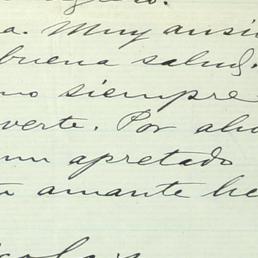 a. Muy ansi
buena salud.
no siempre
verte. Por aho
un apretado
amante he